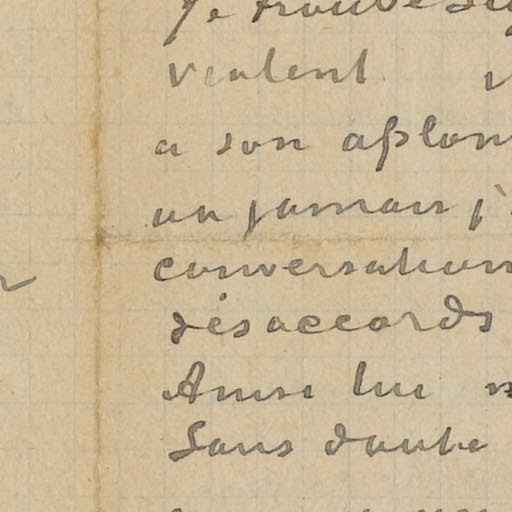 Je trouve
violent
a son aplom
ou jamais j'
conversation
désaccords
Anise lui
Sans doute